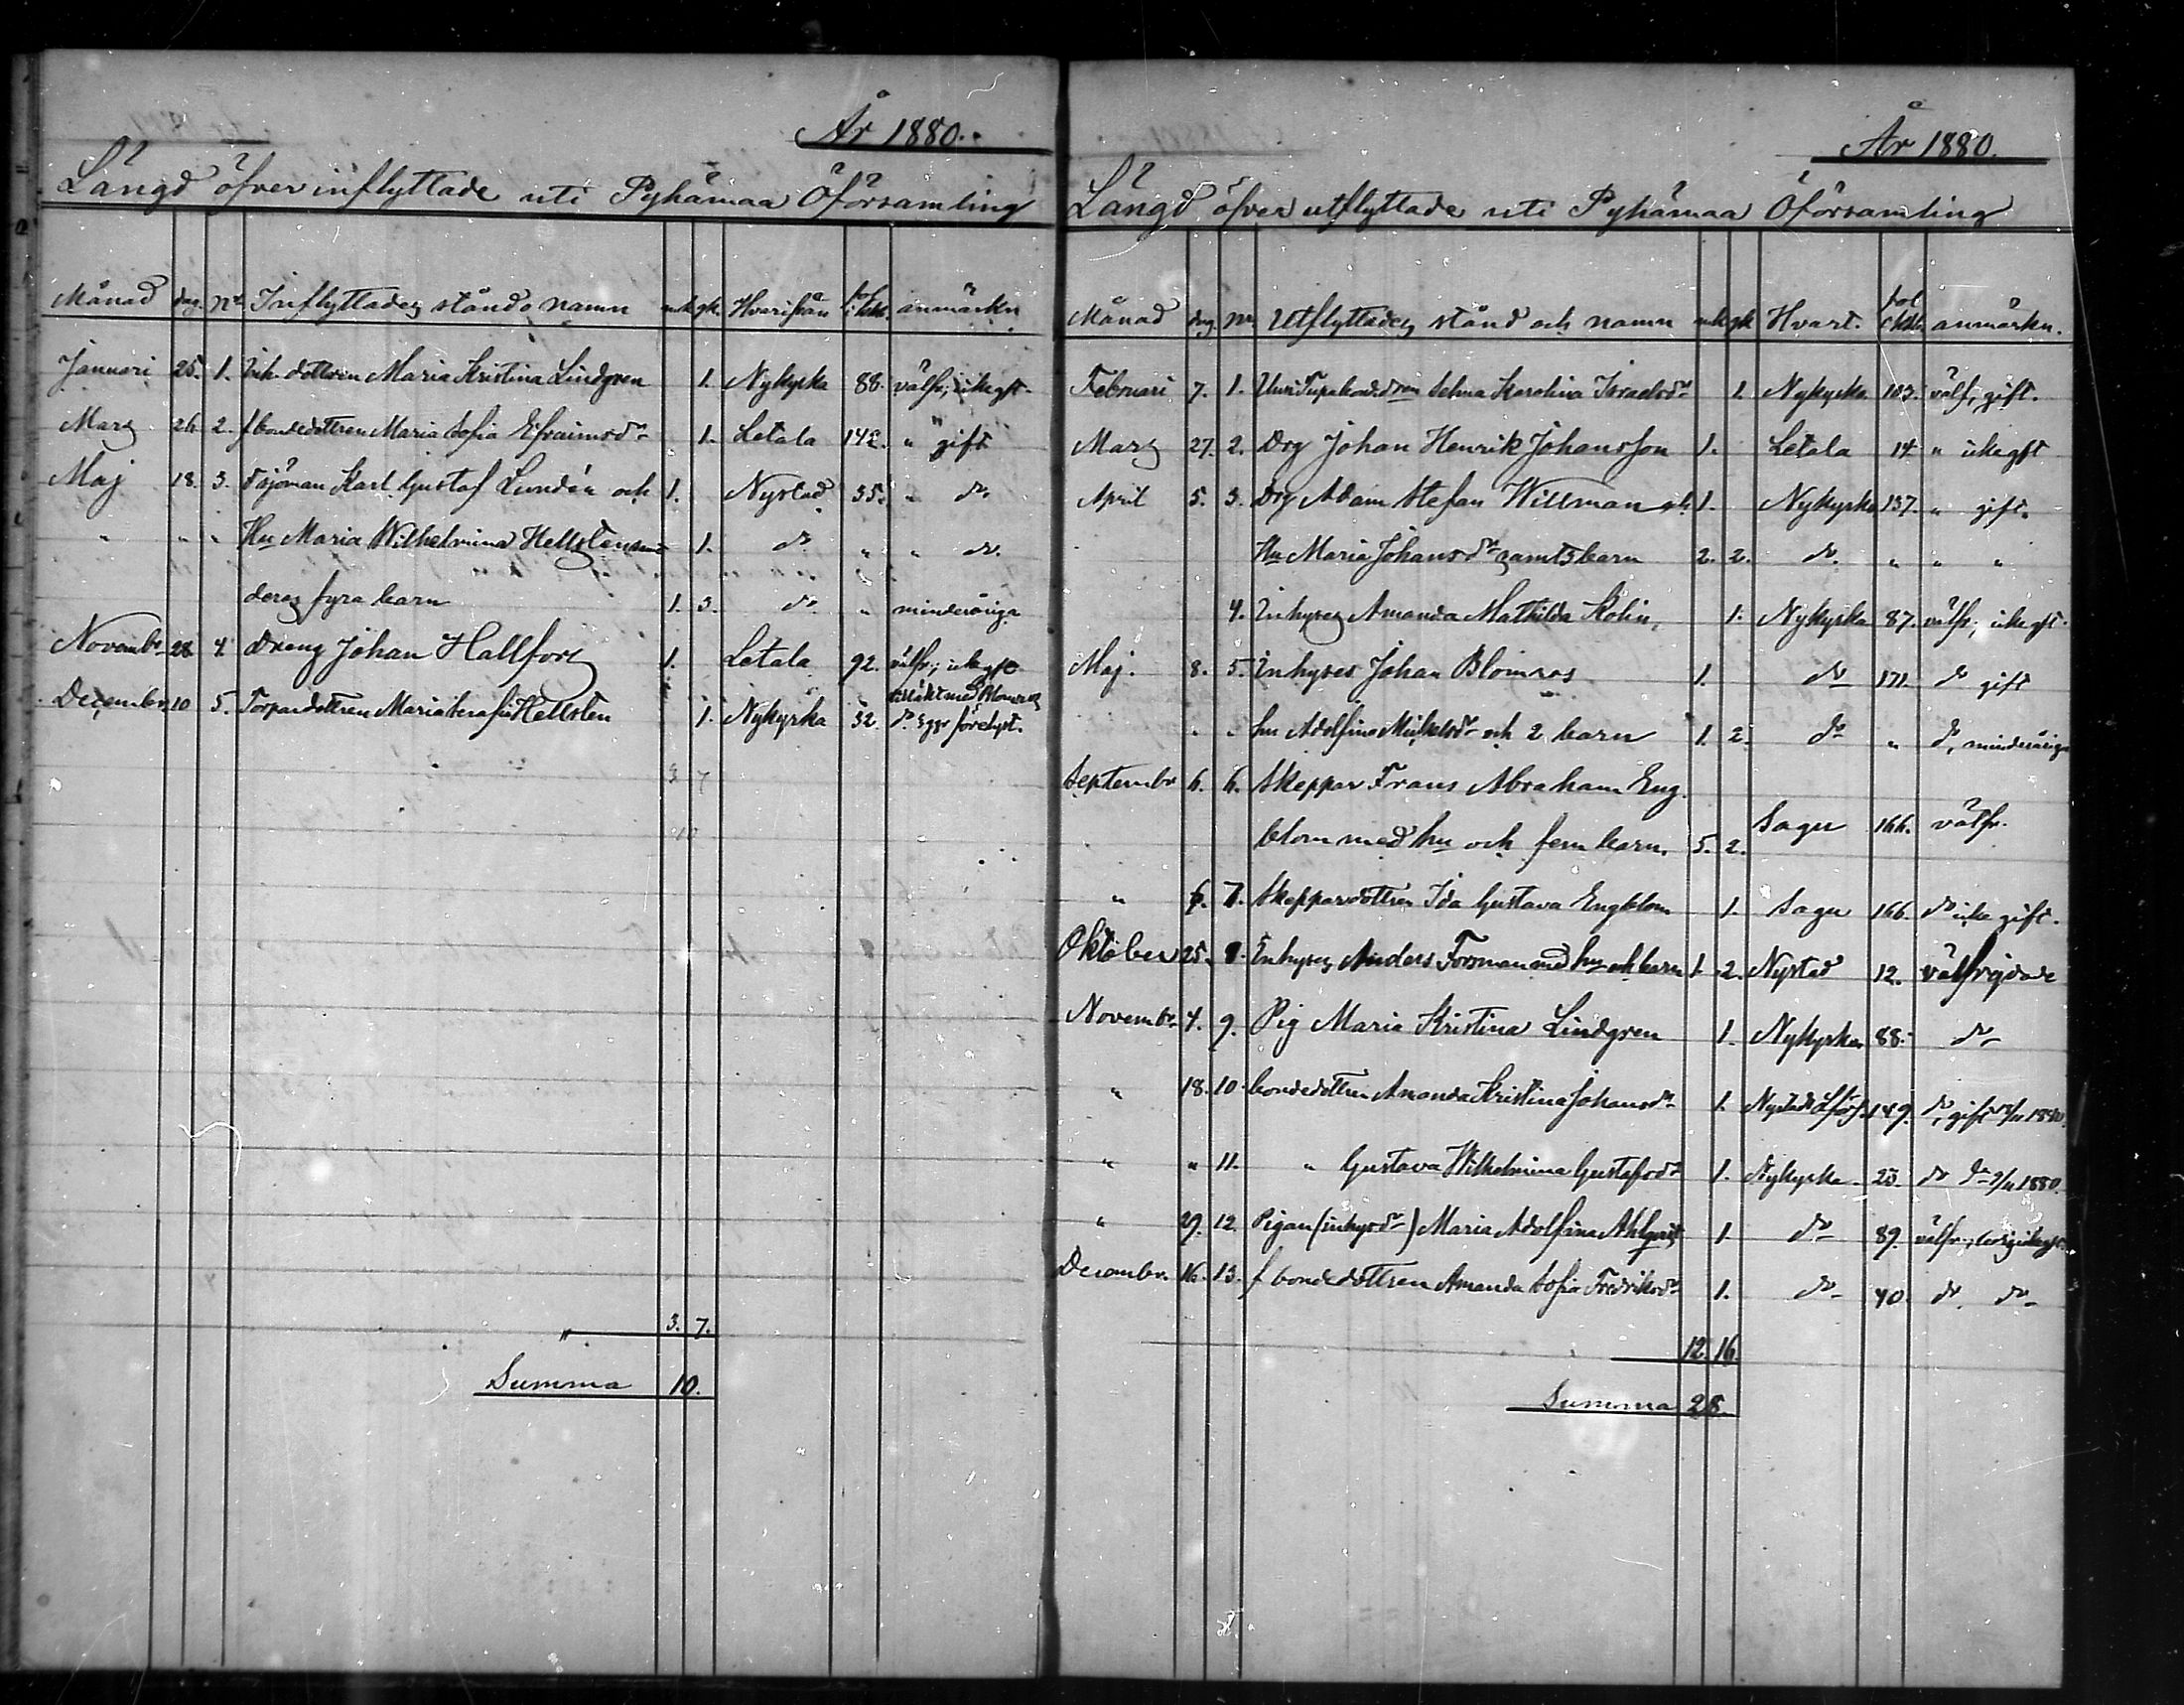 År 1880.
Längd öfver inflyttade uti Pyhämaa Öförsamling
Månad dag. No Inflyttades stånd o namn mk. gk. Hvarifrån fol i kkb. anmärkn
Januari 25. 1. Inh. dottren Maria Kristina Lindgren 1. Nykyrka 88. välfr; icke gft.
Mars 26 2. f bondedottren Maria Sofia Efraimsdr 1. Letala 142. " gift
Maj 18. 3. Sjöman Karl Gustaf Lundén och 1. Nystad 35. " do
" " " Hu Maria Wilhelmina Hellsten samt 1. do " " do.
deras fyra barn 1. 3. do " minderåriga
Novembr 28 4. Dreng Johan Hallfors 1. Letala 92. välfr; icke gft
Decembr. 10 5. Torpardottren Maria Serafia Hellsten 1. Nykyrka 32. do 3ggr förelyst.
3 7
10
3. 7.
Summa 10.
År 1880.
Längd öfver utflyttade uti Pyhämaa Öförsamling
Månad dag. No Utflyttades stånd och namn mk gk Hvart. fol i kkb. anmärkn.
Februari 7. 1. Selma Karolina Israelsdr 1. Nykyrka 103. välf, gift.
Mars 27. 2. Drg Johan Henrik Johansson 1. Letala 14 " icke gft
April 5. 3. Drg Adam Stefan Willman och 1. Nykyrka 137. " gift.
Hu Maria Johansdr samt 3 barn 2. 2. do. " " "
4. Inhyses Amanda Mathilda Kolin, 1. Nykyrka 87. välfr; icke gft.
Maj. 8. 5. Inhyses Johan Blomros 1. do 171. do gift
" " hu Adolfina Mickelsdr och 2 barn 1. 2. do " do, minderåriga
Septembr 6. 6. Skeppar Frans Abraham Eng
blom med hu och fem barn. 5. 2. Sagu 166. välfr.
" 6. 7. Skeppardottren Ida Gustava Engblom 1. Sagu 166. do icke gift.
Oktober 25. 8. Inhyses Anders Forsman med hu och barn 1. 2. Nystad 12. välfrejdade
Novembr. 4. 9. Pig Maria Kristina Lindgren 1. Nykyrka 88. do
" 18. 10. bondedottren Amanda Kristina Johansdr 1. Nystads löförs. 149. do, gift 1880.
" " 11. " Gustava Wilhelmina Gustafsdr 1. Nykyrka 23. do do 9/11 1880.
" 29. 12. Pigan (inhysdr) Maria Adolfina Ahlqvist 1. do 89. välfr., ledig
Decembr. 16. 13. f bondedottren Amanda Sofia Fredriksdr 1. do 40. do. do
12. 16.
Summa 28.